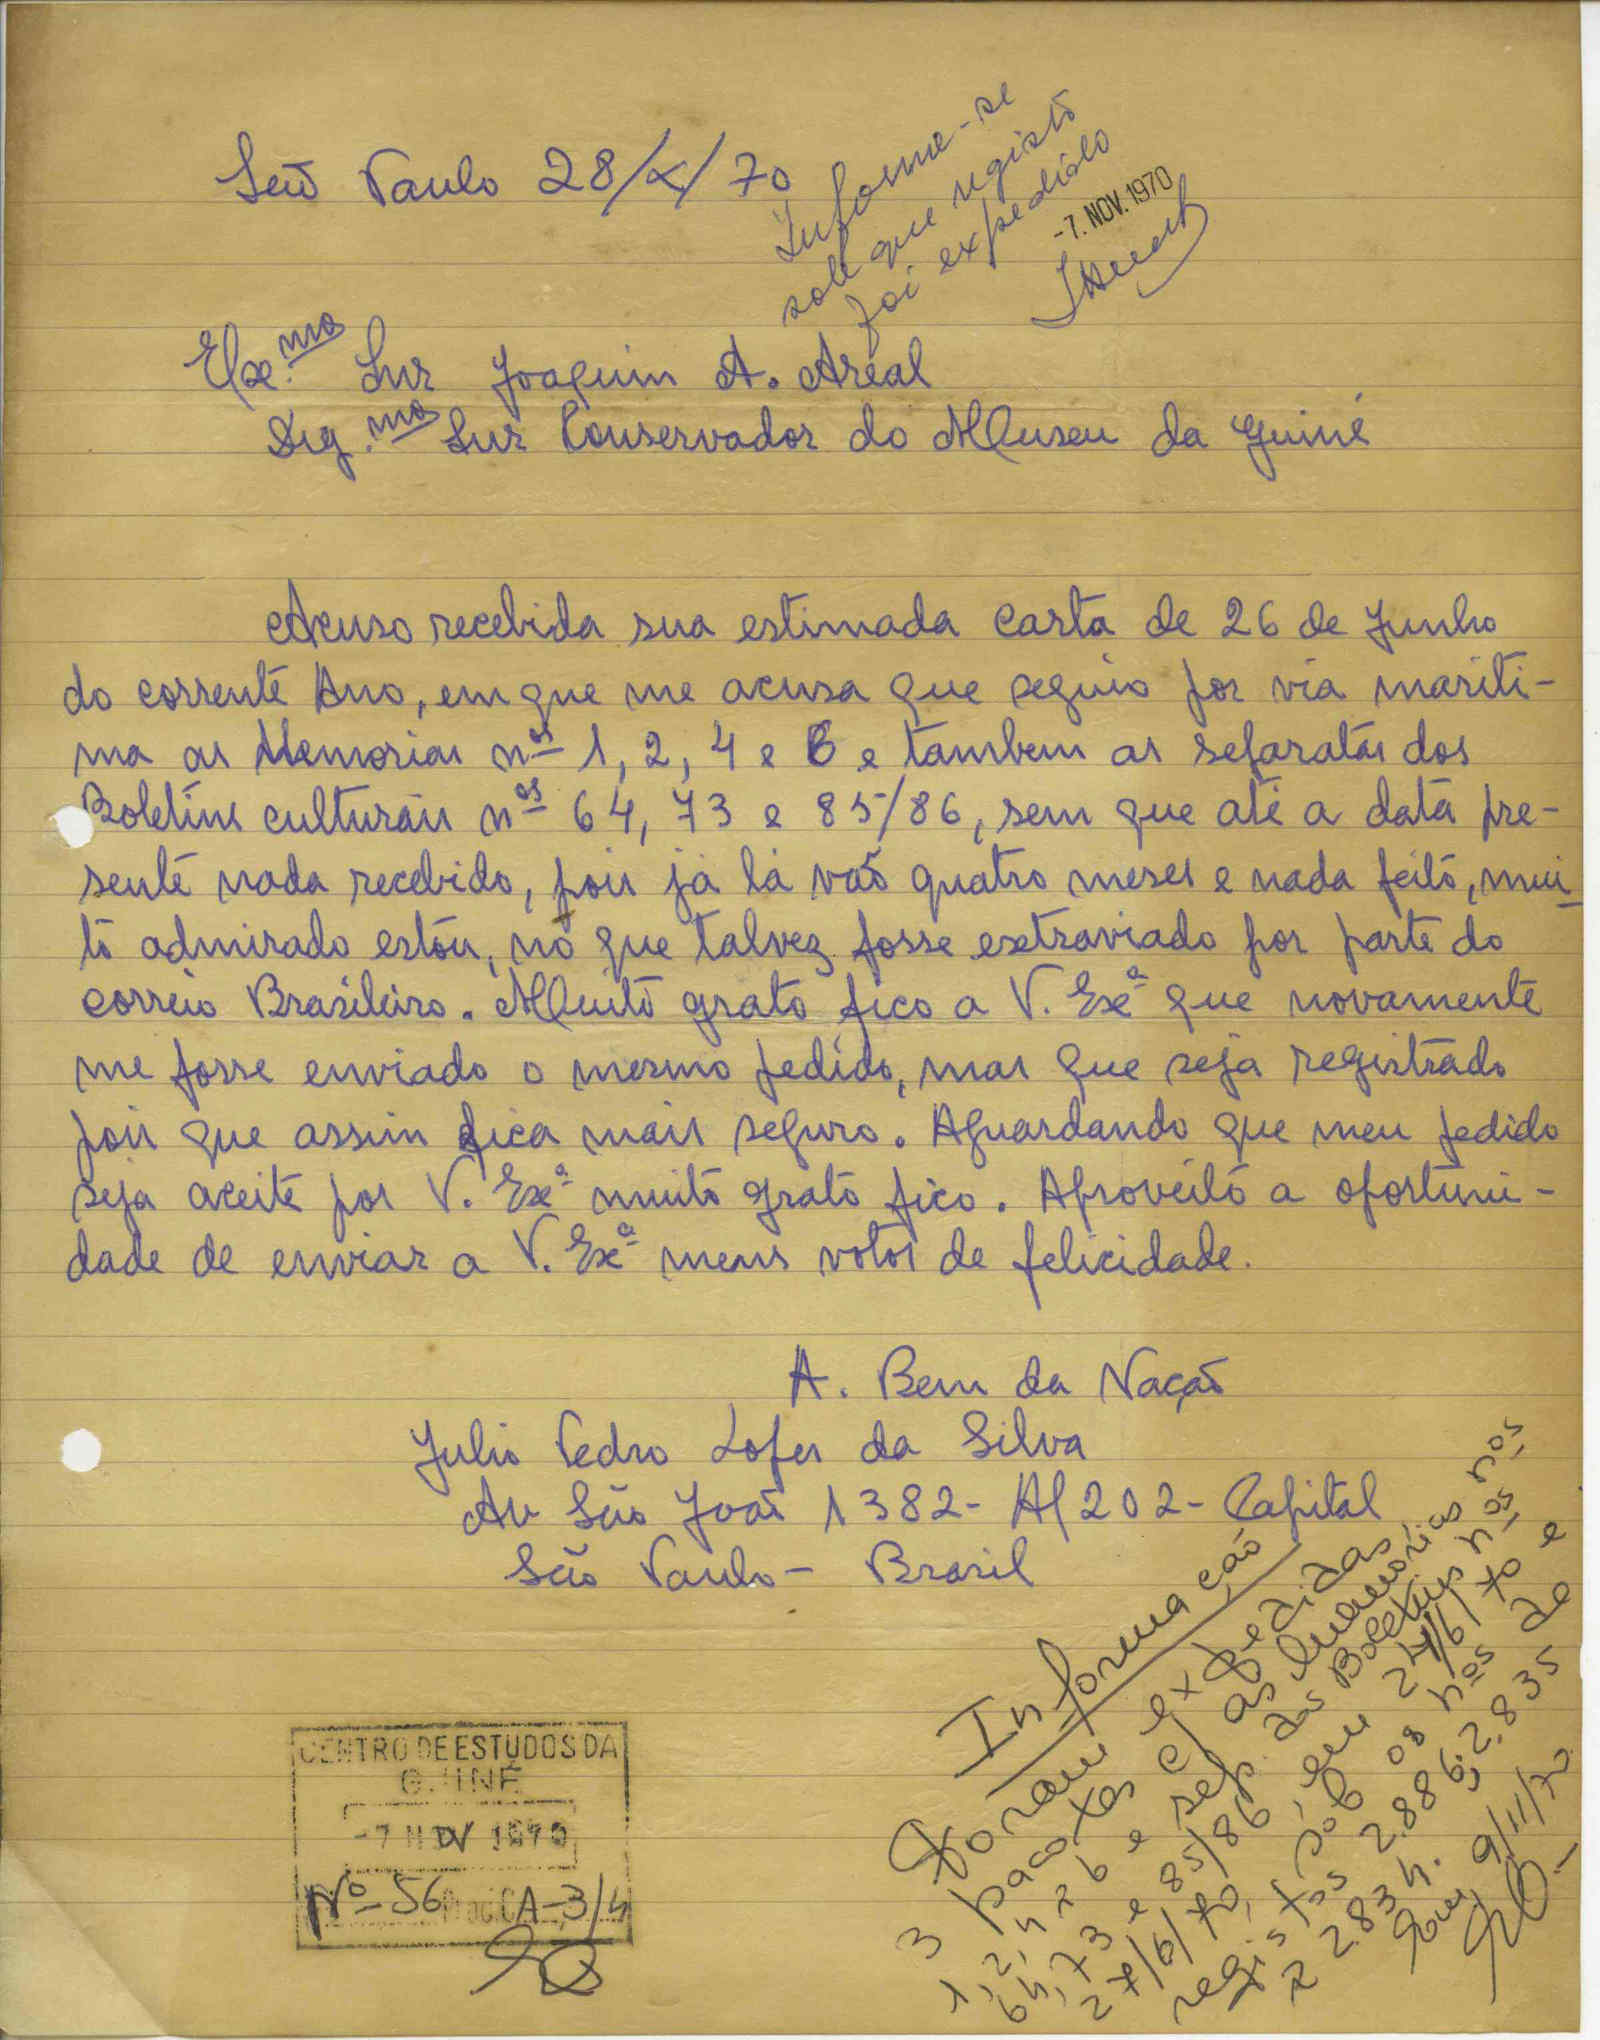 São Paulo 28/X/70
Informe-se
sob que registo
foi expedido
-7. NOV. 1970
Exe.mo Snr Joaquim A. Areal
Dig.mo Snr Conservador do Museu da Guiné
Acuso recebida sua estimada carta de 26 de Junho
do corrente Ano, em que me acusa que seguio por via mariti-
ma as Memorias nos 1, 2, 4 e 6 e tambem as separatas dos
Boletins culturais nos 64, 73 e 85/86, sem que até a data pre-
sente nada recebido, pois já lá vão quatro meses e nada feito, mui
to admirado estou, no que talvez fosse extraviado por parte do
correio Brasileiro. Muito grato fico a V. Exa que novamente
me fosse enviado o mesmo pedido, mas que seja registrado
pois que assim fica mais seguro. Aguardando que meu pedido
seja aceite por V. Exa muito grato fico. Aproveito a oportuni-
dade de enviar a V. Exa meus votos de felicidade.
A. Bem da Nação
Julio Pedro Lopes da Silva
Av São João 1382- Ap 202- Capital
São Paulo - Brasil
Informação
Foram expedidas
3 pacotes c/ as memórias nos
1, 2, 4 e 6 e sep. dos Boletins nos
64, 73 e 85/86, em 24/6/70 e
27/6/70, sob os nos de
registos 2.886, 2.835
e 2.834.
9/11/70
CENTRO DE ESTUDOS DA
GUINÉ
-7 NOV 1970
Nº 56 Proc. CA-3/4